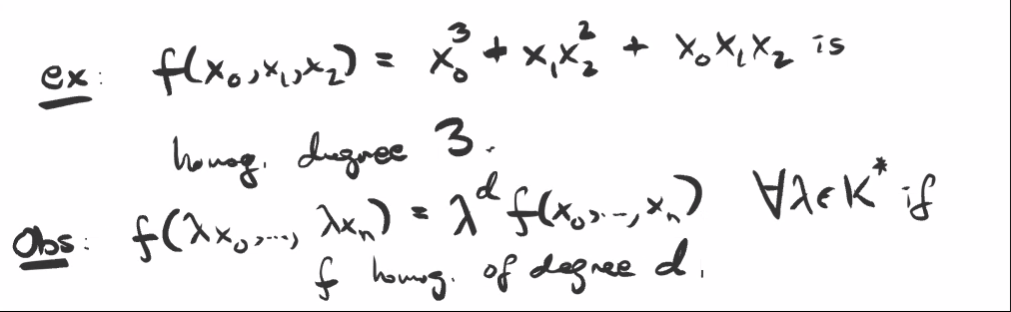 ex: f(x₀,x₁,x₂) = x₀³ + x₁x₂² + x₀x₁x₂ is
homog. degree 3.
Obs: f(λx₀,..., λxₙ) = λᵈ f(x₀,..,xₙ) ∀λ∈K* if
f homog. of degree d.